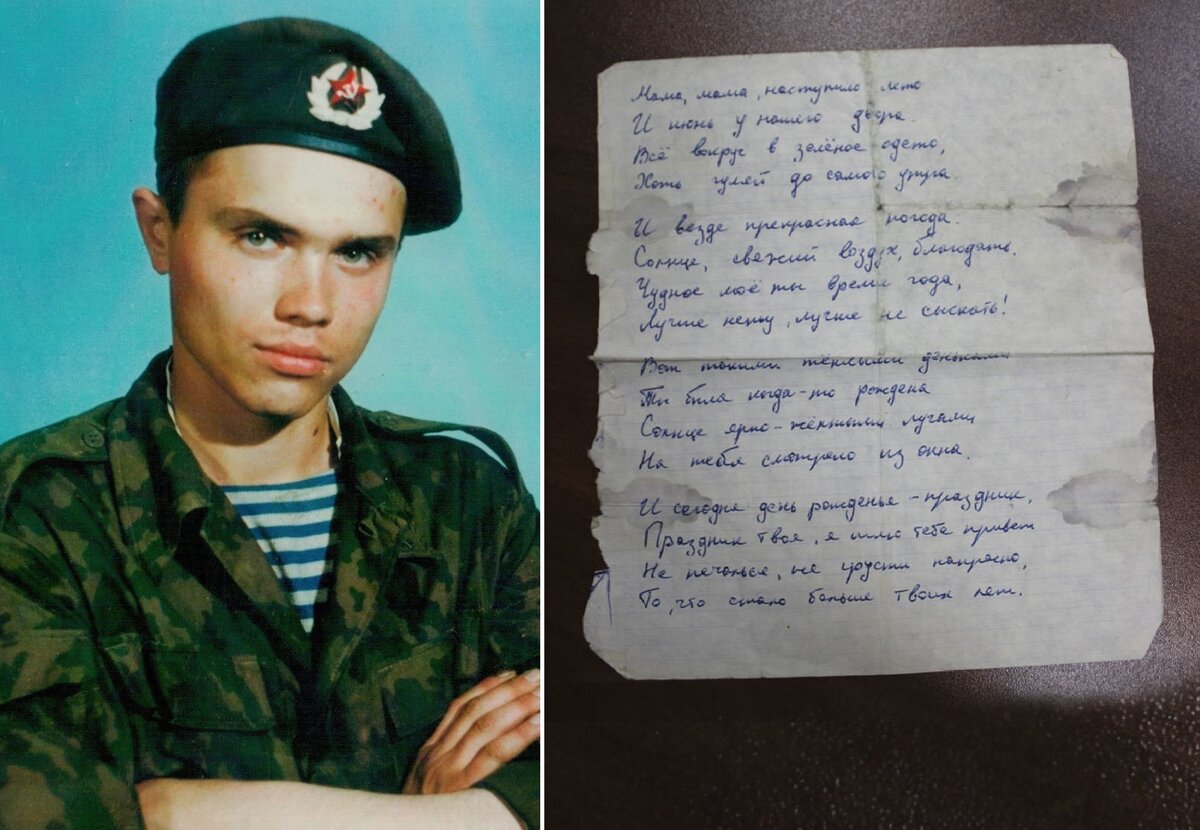 Мама, мама, наступило лето
И июнь у нашего двора.
Всё вокруг в зелёное одето,
Хоть гуляй до самого утра.
И везде прекрасная погода:
Солнце, свежий воздух, благодать.
Чудное моё ты время года,
Лучше нету, лучше не сыскать!
Вот такими тёплыми деньками
Ты была когда-то рождена
Солнце ярко-жёлтыми лучами
На тебя смотрело из окна.
И сегодня день рожденье - праздник,
Праздник твой, я шлю тебе привет
Не печалься, не грусти напрасно,
То, что стало больше твоих лет.